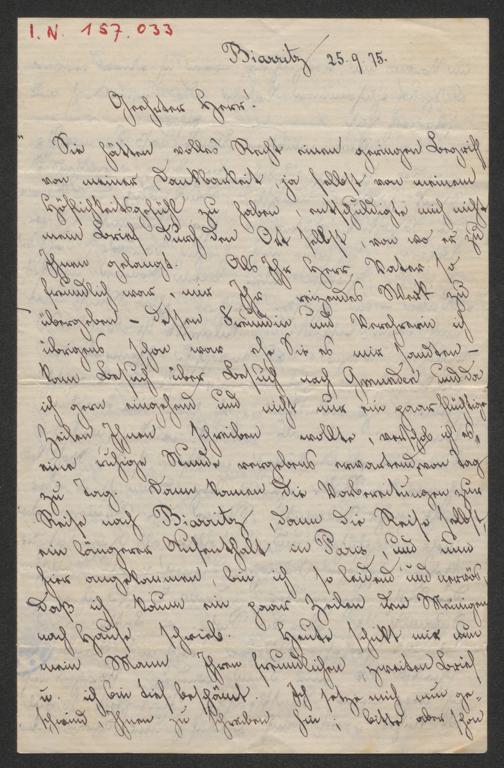 I.N. 157.033
Biarritz 25.9.75.
Geehrter Herr!
Sie hätten volles Recht einen geringen Begriff
von meiner Dankbarkeit, ja selbst von meinem
Höflichkeitsgefühl zu haben, entschuldigte mich nicht
mein Brief durch den Ort selbst, von wo er zu
Ihnen gelangt. Als Ihr Herr Vater so
freundlich war, mir Ihr reizendes Werk zu
übergeben – dessen Freundin und Verehrerin ich
übrigens schon war ehe Sie es mir sandten –
kam Besuch über Besuch nach Gmunden und da
ich gern eingehend und nicht nur ein paar flüchtige
Zeilen Ihnen schreiben wollte, verschob ich es,
eine ruhige Stunde vergebens erwartend, von Tag
zu Tag. Dann kamen die Vorbereitungen zur
Reise nach Biarritz, dann die Reise selbst,
ein längerer Aufenthalt in Paris, und nun
hier angekommen, bin ich so leidend und nervös,
daß ich kaum ein paar Zeilen den Meinigen
nach Hause schrieb. Heute schickt mir nun
mein Mann Ihren freundlichen zweiten Brief
u. ich bin tief beschämt. Ich setze mich nun ge-
schwind, Ihnen zu schreiben hin; bitte aber schon